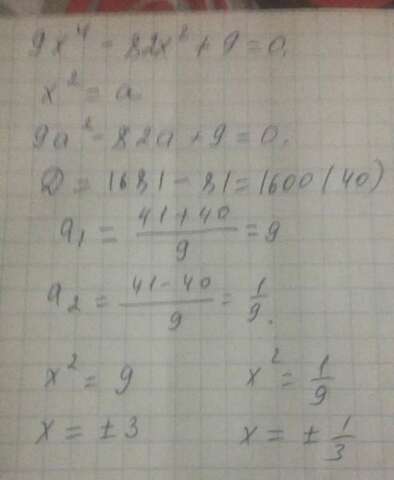 9x⁴ - 82x² + 9 = 0.
x² = a
9a² - 82a + 9 = 0.
D = 1681 - 81 = 1600 (40)
a₁ = (41 + 40)/9 = 9
a₂ = (41 - 40)/9 = 1/9.
x² = 9    x² = 1/9
x = ± 3    x = ± 1/3